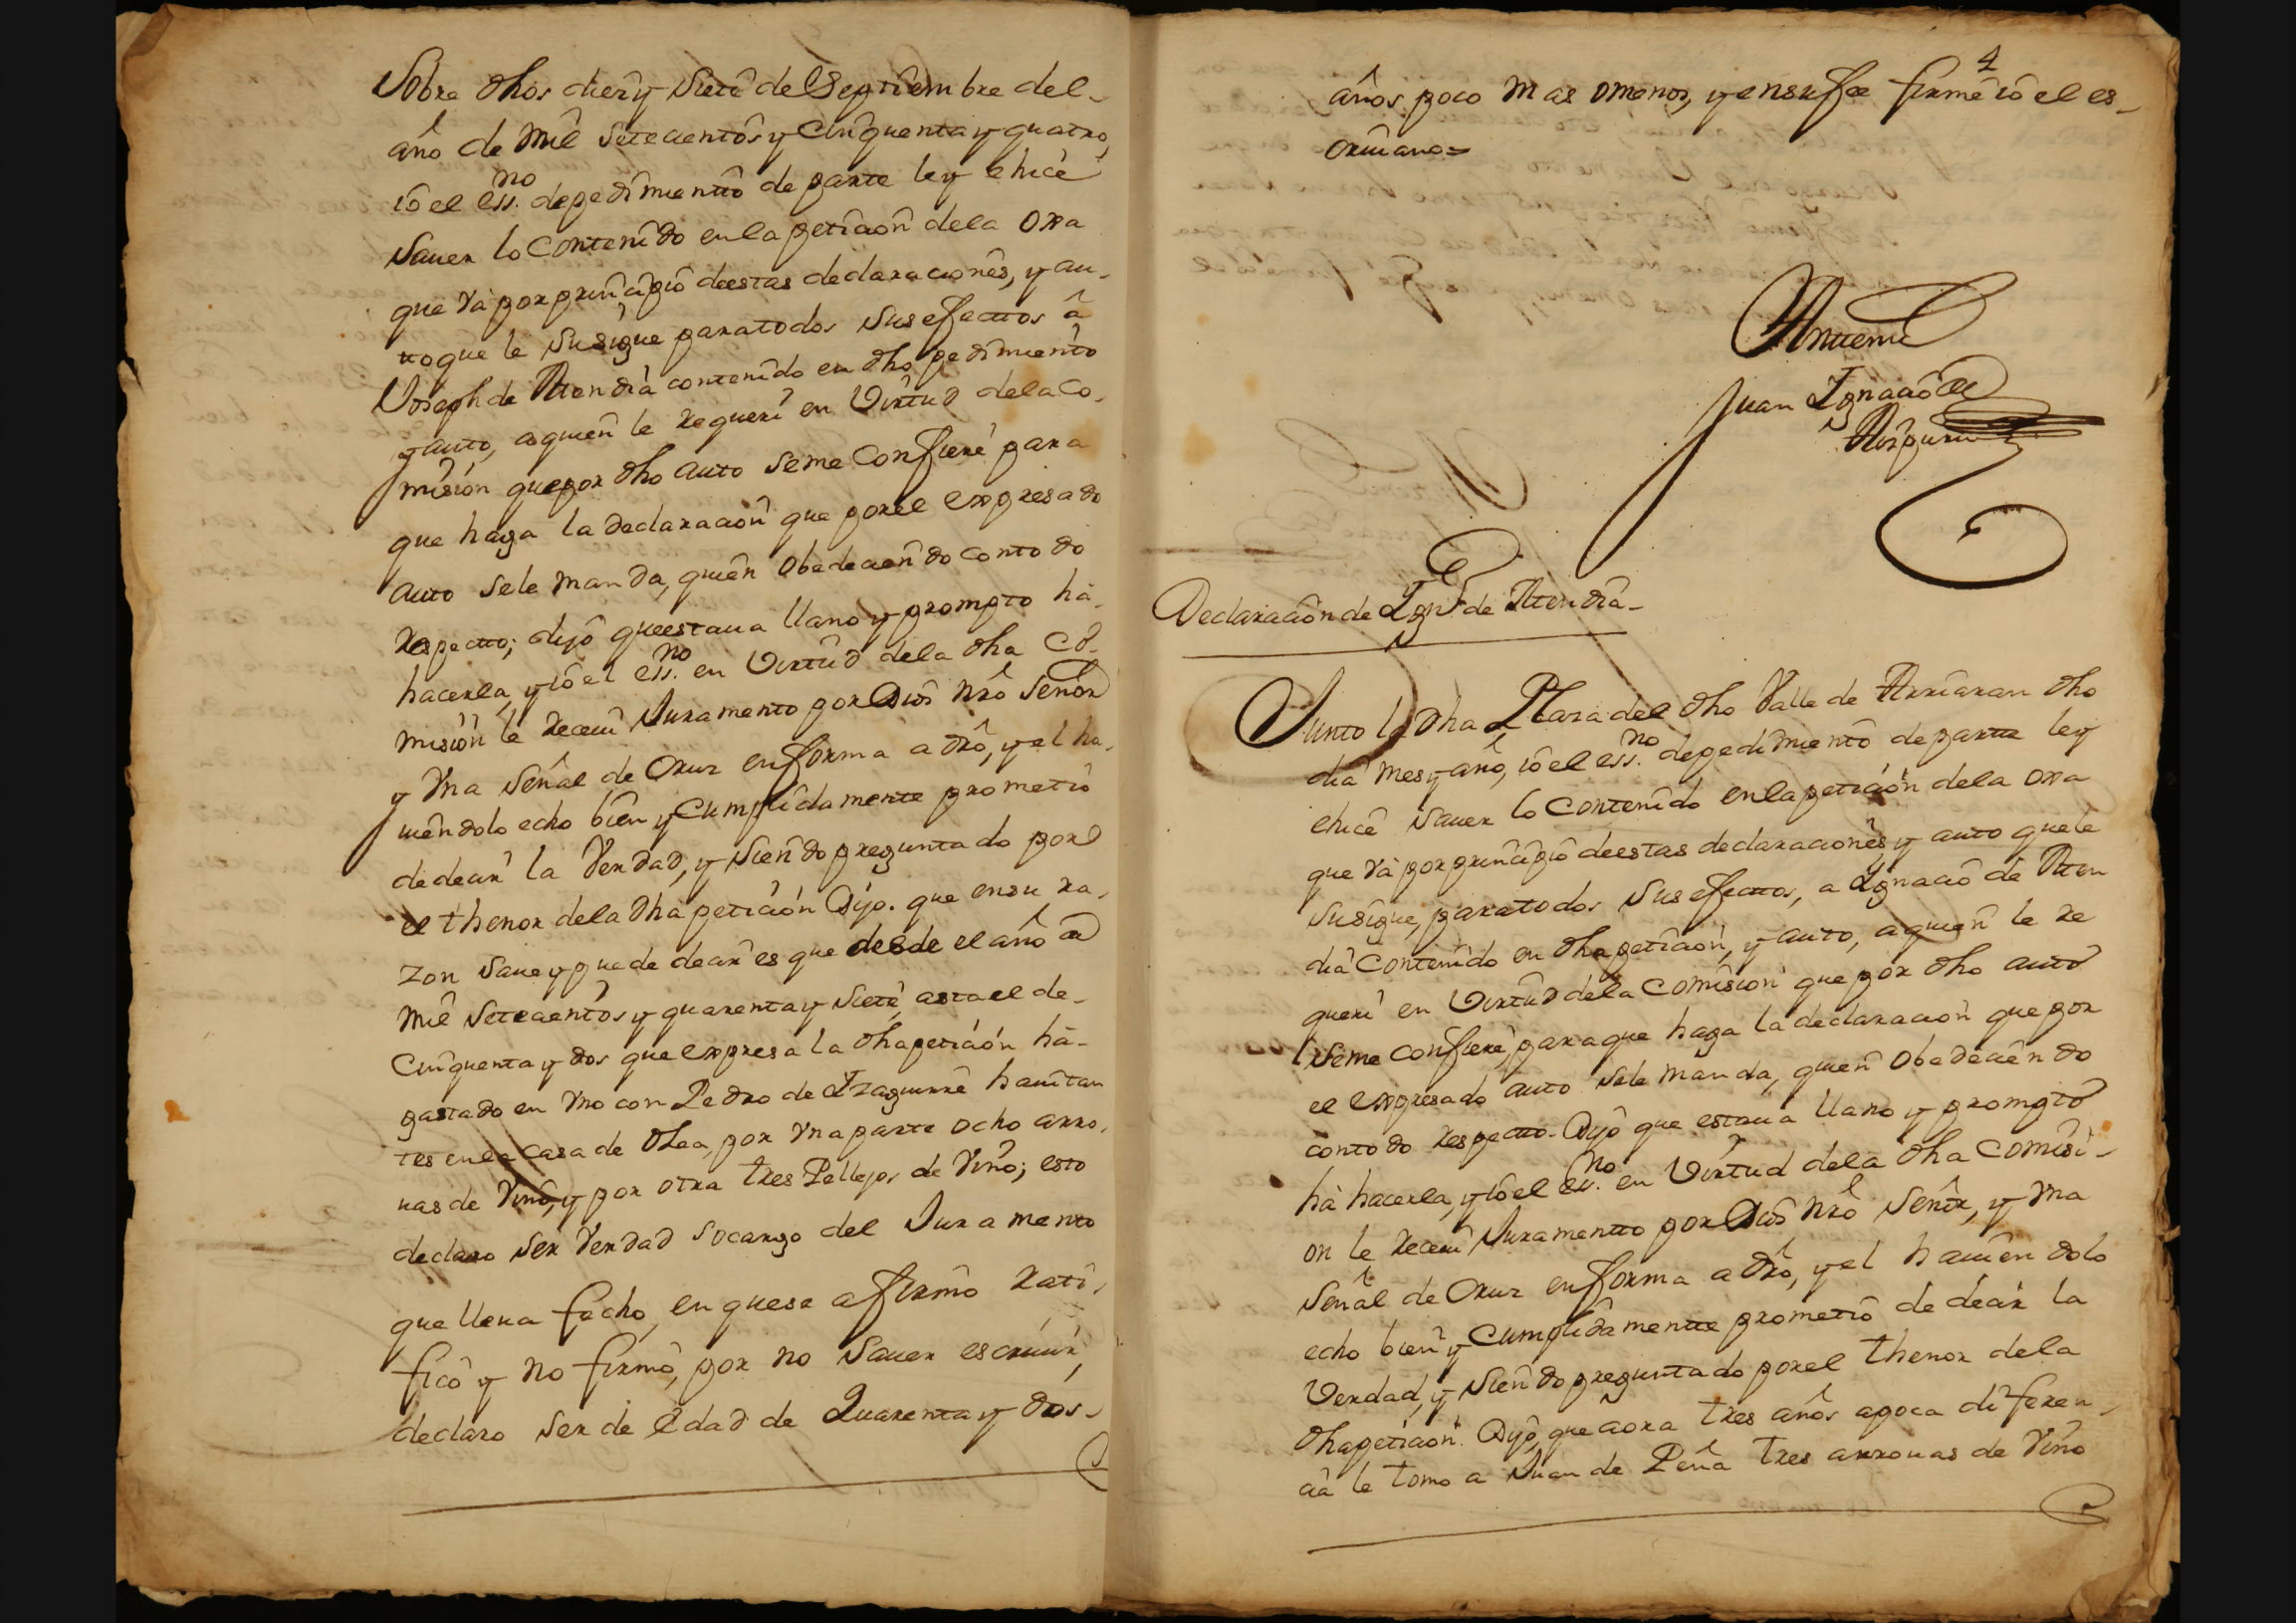 Sobre dhos diez y Siete de Septiembre del
año de Mil Setecientos y Cinquenta y quatro,
io el ess.no de pedimientto de parte ley e hice
Sauer lo Contenido en la peticion de la oxa
que và por principio de estas declaraciones, y au-
to que le Susigue para todos Sus efecttos â
Joseph de Atendia contenido en dho pedimiento
y auto, aquien le requeri en Virtud de la Co-
misión que por dho auto Seme Confiere para
que haga la declaracion que por el expresado
auto Sele manda, quien Obedeciendo con todo
Respectto; dijo que estaua llano y prompto hà
hacerla, y io el ess.no en Virtud de la dha Co-
misión le Receui Juramento por Dios nrô Señor
y Vna Señal de Cruz en forma a drô, y el ha-
uiendolo echo bien y Cumplidamente prometio
de decir la Verdad, y Siendo preguntado por
el thenor de la dha petición Dijo. que en su ra-
zon Saue y puede decir es que desde el año de
Mil Setecientos y quarenta y Siete, asta el de
Cinquenta y dos que expresa la dha petición hà
gastado en Vno con Pedro de Yzaguirre hauitan
tes en la Casa de Olea, por Vna parte ocho arro-
uas de Vino, y por otra tres Pellejos de Vino; esto
declaro Ser Verdad Socargo del Juramento
que lleua fecho, en que se afirmò Rati-
ficô y no firmô, por no Sauer escriuir,
declaro Ser de edad de Quarenta y dos
4
años poco mas omenos, y en su fee firme io el es-
criuano=
Antemi
Juan Ygnacio de
Aizpuru
Declaración de Ygn.o de Atendia
Junto la dha Plaza del dho Valle de Arriaran dho
dia mes y año, io el ess.no de pedimiento de partte ley
e hice Sauer lo Contenido en la petición de la oxa
que và por principio de estas declaraciones, y auto que le
Susigue, para todos Sus efecttos, a Ygnacio de Aten
dia Contenido en dha petición, y auto, aquien le re
queri en Virtud de la Comisión que por dho auto
Seme Confiere, para que haga la declaración que por
el expresado auto Sele manda, quien Obedeciendo
con todo Respectto. Dijo que estaua llano y prompto
hà hacerla, y io el ess.no en Virtud de la dha Comisi-
on le Receui Juramentto por Dios nrô Señor, y Vna
Señal de Cruz en forma a drô, y el hauiendolo
echo bien y Cumplidamentte prometió de decir la
Verdad, y Siendo preguntado por el thenor de la
dha petición. Dijo, que aora tres años apoca diferen
cia le tomo a Juan de Peña tres arrouas de Vino